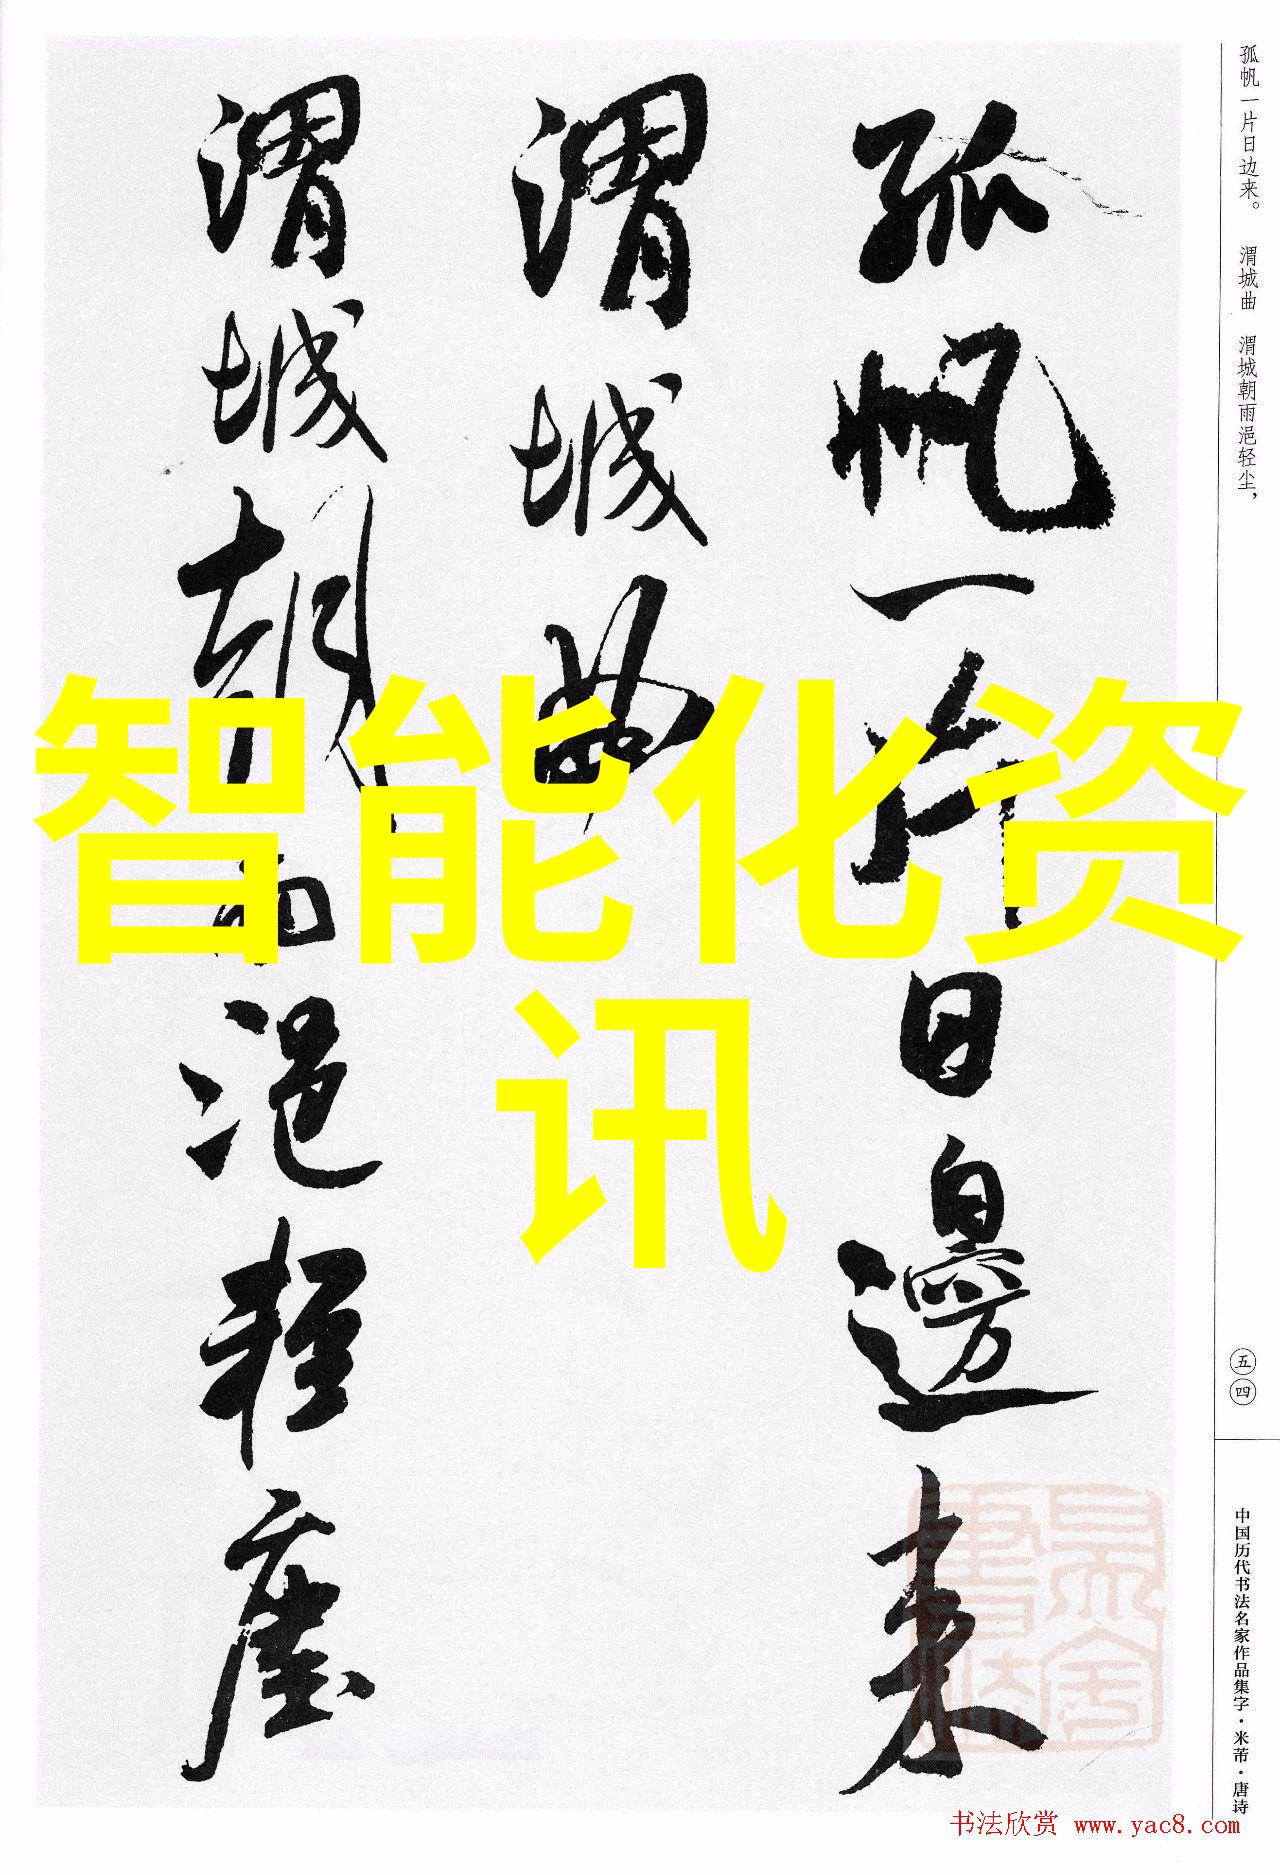 孤帆一片日边来。 渭城曲 渭城朝雨浥轻尘，
孤帆一片日邊来
渭城曲
渭城朝雨浥轻塵
智能化资
讯
五四
中国历代书法名家作品集字·米芾·唐诗
书法欣赏 www.yac8.com